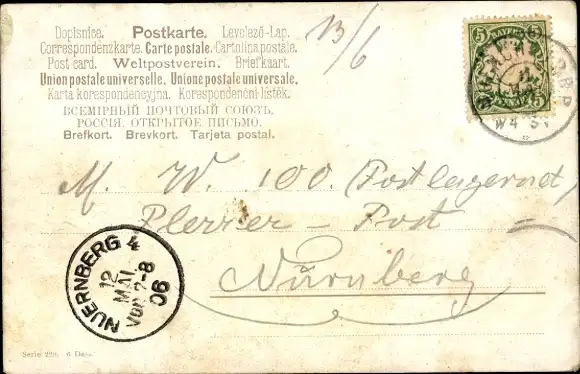 Dopisnice. Postkarte. Levelező-Lap.
Correspondenzkarte. Carte postale. Cartolina postale.
Post card. Weltpostverein. Briefkaart.
Union postale universelle. Unione postale universale.
Karta korespondencyjna. Korespondenční lístek.
ВСЕМІРНЫЙ ПОЧТОВЫЙ СОЮЗЪ.
РОССІЯ. ОТКРЫТОЕ ПИСЬМО.
Brefkort. Brevkort. Tarjeta postal.
13/6
5 BAYERN 5
M. W. 100. (Postlagernd)
Plerrer - Post -
Nürnberg
NUERNBERG 4
12
MAI
VOR 7-8
06
Serie 229.